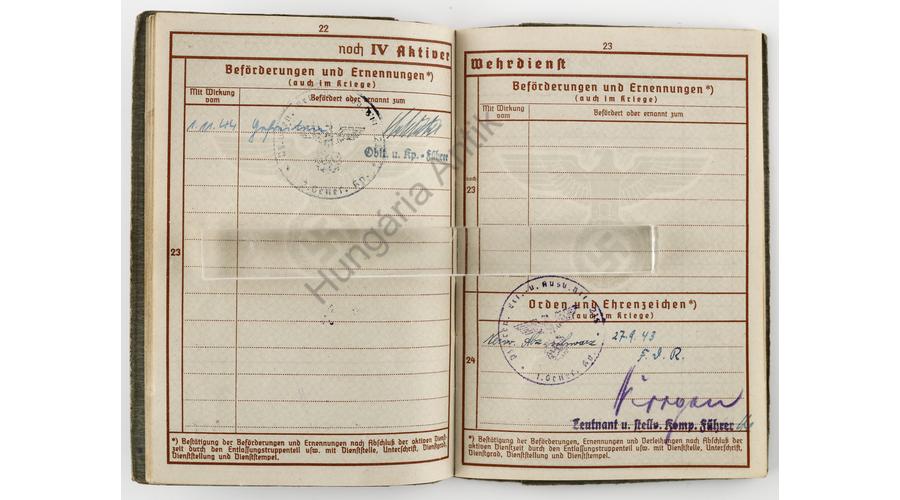 22
noch IV Aktiver
Beförderungen und Ernennungen*)
(auch im Kriege)
Mit Wirkung vom
Befördert oder ernannt zum
1.11.44 Gefreiten
Oblt. u. Kp.-Führer
1. Genes. Kp.
23
*) Bestätigung der Beförderungen und Ernennungen nach Abschluß der aktiven Dienst-
zeit durch den Entlassungstruppenteil usw. mit Dienststelle, Unterschrift, Dienstgrad,
Dienststellung und Dienststempel.
23
Wehrdienst
Beförderungen und Ernennungen*)
(auch im Kriege)
Mit Wirkung vom
Befördert oder ernannt zum
noch
23
Orden und Ehrenzeichen*)
(auch im Kriege)
Verw. Abz. schwarz 27.9.43
F.d.R.
1. Genes. Kp.
24
Leutnant u. stellv. Komp. Führer
*) Bestätigung der Beförderungen, Ernennungen und Verleihungen nach Abschluß der
aktiven Dienstzeit durch den Entlassungstruppenteil usw. mit Dienststelle, Unterschrift,
Dienstgrad, Dienststellung und Dienststempel.
Hungária Antik